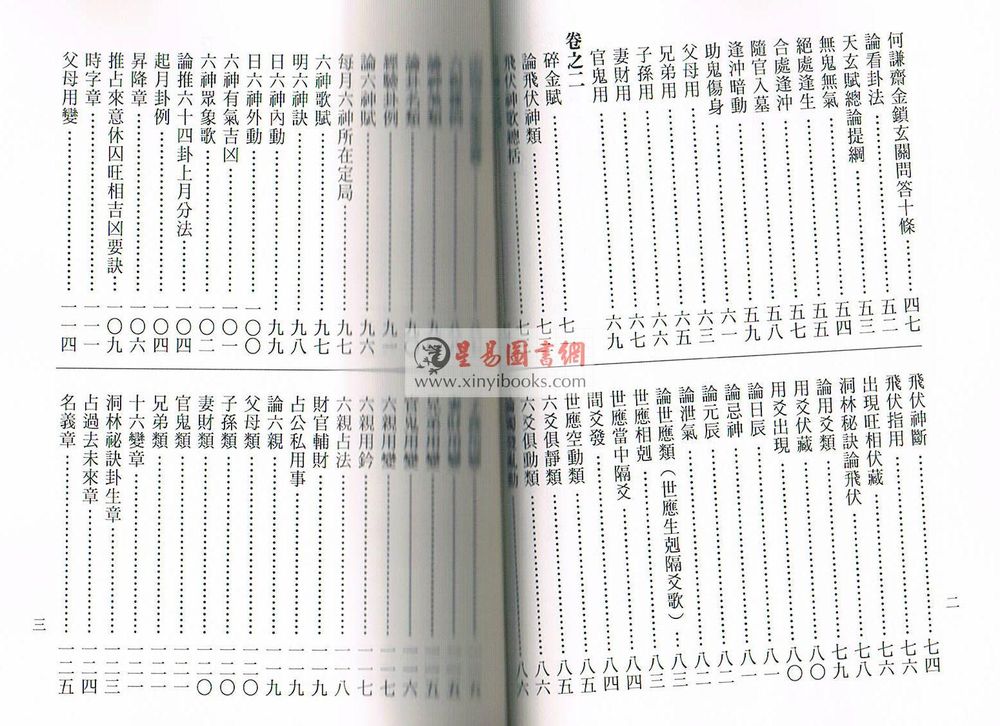 何謙齋金鎖玄關問答十條……四七
論看卦法……五二
天玄賦總論提綱……五三
無鬼無氣……五四
絕處逢生……五五
合處逢沖……五七
隨官入墓……五八
逢沖暗動……五九
助鬼傷身……六一
父母用……六三
兄弟用……六五
子孫用……六六
妻財用……六七
官鬼用……六九
卷之二
碎金賦……
論飛伏神類……
飛伏神歌總括……
飛伏神斷……七四
飛伏指用……七六
出現旺相伏藏……七六
洞林秘訣論飛伏……七九
論用爻類……八〇
用爻伏藏……八〇
用爻出現……八一
論日辰……八一
論忌神……八二
論元辰……八二
論泄氣……八三
論世應類(世應生剋隔爻歌)……八三
世應相剋……八四
世應當中隔爻……八四
間爻發……八四
世應空動類……八五
六爻俱靜類……八五
六爻俱動類……八六
二
論六神賦……九六
每月六神所在定局……九七
六神歌賦……九七
明六神訣……九八
日六神內動……九九
日六神外動……一〇〇
六神有氣吉凶……一〇一
六神眾象歌……一〇二
論推六十四卦上月分法……一〇四
起月卦例……一〇四
昇降章……一〇六
推占來意休囚旺相吉凶要訣……一〇九
時字章……一一一
父母用變……一一四
官鬼用變
六親用變……一一七
六親用鈐……一一七
六親占法……一一八
財官輔財……一一九
占公私用事……一一九
論六親……一一九
父母類……一二〇
子孫類……一二〇
妻財類……一二〇
官鬼類……一二一
兄弟類……一二一
十六變章……一二二
洞林祕訣卦生章……一二三
占過去未來章……一二四
名義章……一二五
三
星易圖書網
www.xinyibooks.com